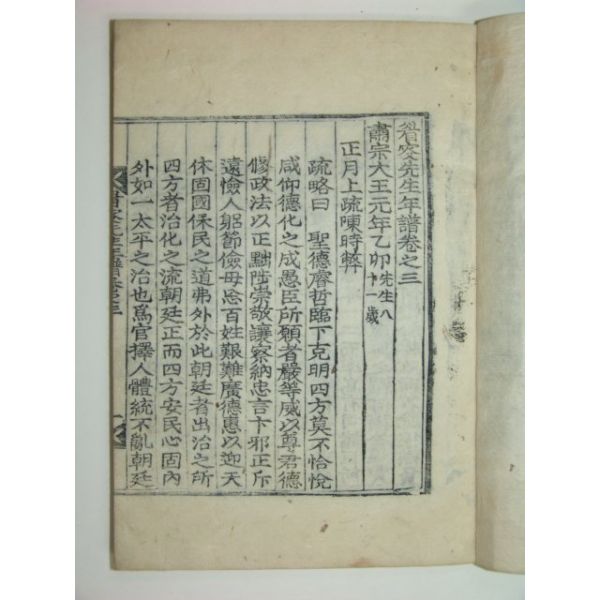 眉叟先生年譜卷之三
肅宗大王元年乙卯 先生八十一歲
正月上疏陳時弊
疏略曰 聖德睿哲臨下克明四方莫不恰悅
咸仰德化之成愚臣所願者嚴等威以尊君德
修政法以正黜陟崇敬讓察納忠言卞邪正斥
遠憸人躬節儉毋忘百姓艱難廣德惠以迎天
休固國保民之道弗外於此朝廷者出治之所
四方者治化之流朝廷正而四方安民心固內
外如一太平之治也爲官擇人體統不亂朝廷